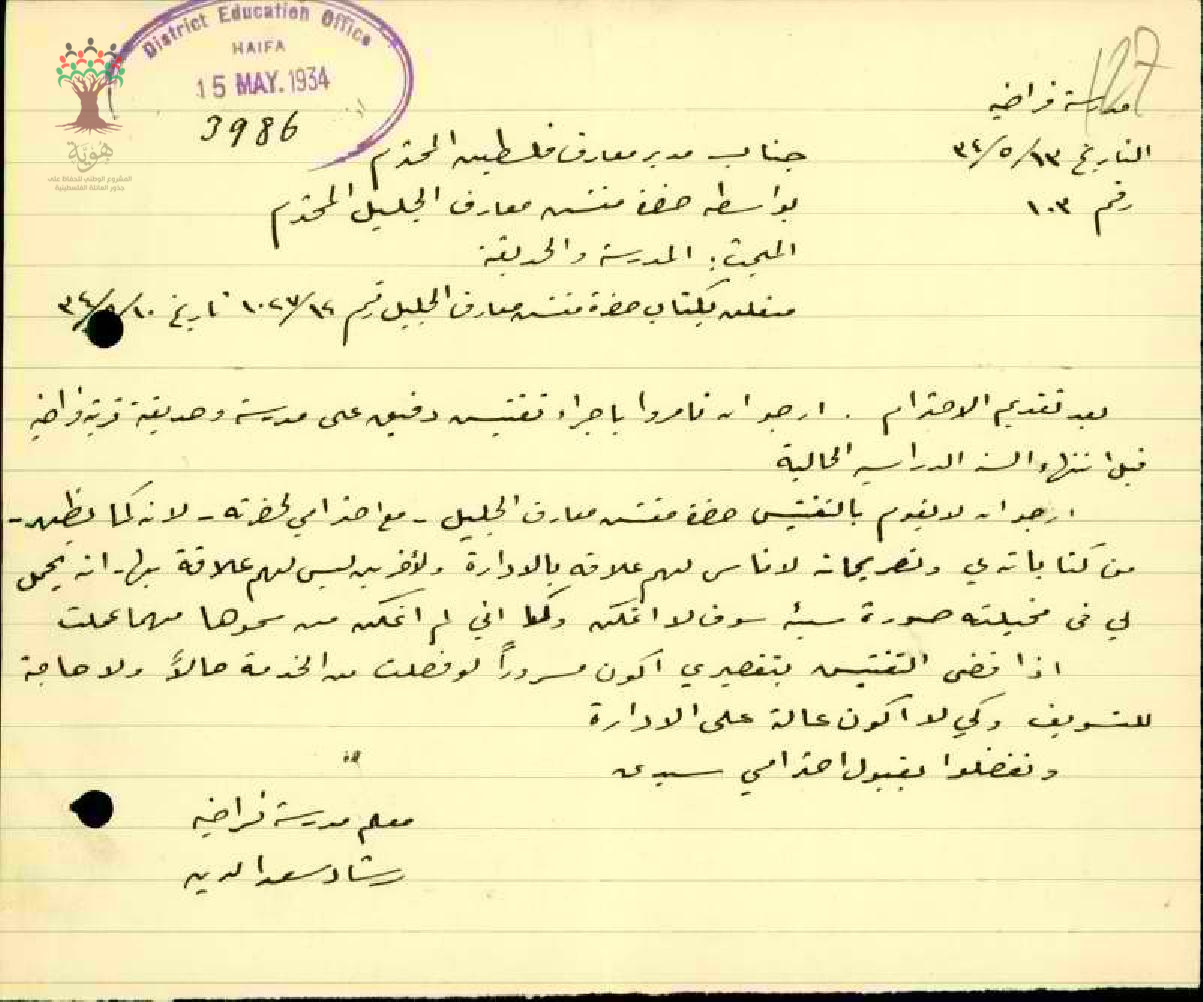 District Education Office
HAIFA
15 MAY. 1934
3986
127
هوية
المشروع الوطني للحفاظ على
جذور العائلة الفلسطينية
مدرسة فراضيه
التاريخ ١٣/٥/٣٤
رقم ١٠٣
جناب مدير معارف فلسطين المحترم
بواسطة حضرة مفتش معارف الجليل المحترم
المبحث: المدرسة والحديقة
متعلق بكتاب حضرة مفتش معارف الجليل رقم ١٠٢٧/١٢ تاريخ ١٠/ /٣٤
بعد تقديم الاحترام . ارجو ان تامروا باجراء تفتيش دقيق على مدرسة وحديقة قرية فراضيه
قبل انتهاء السنه الدراسيه الحالية
ارجو ان لا يقوم بالتفتيش حضرة مفتش معارف الجليل - مع احترامي لحضرته - لانه كما يظهر -
من كتاباته لي وتصريحاته لاناس لهم علاقه بالادارة ولآخرين ليس لهم علاقة بها - انه يحمل
لي في مخيلته صورة سيئه سوف لا اتمكن وكما اني لم اتمكن من محوها مهما عملت
اذا قضى التفتيش بتقصيري اكون مسروراً لو فصلت من الخدمة حالاً ولا حاجة
للتسويف وكي لا اكون عالة على الادارة
وتفضلوا بقبول احترامي سيدي
معلم مدرسة فراضيه
رشاد سعد الدين